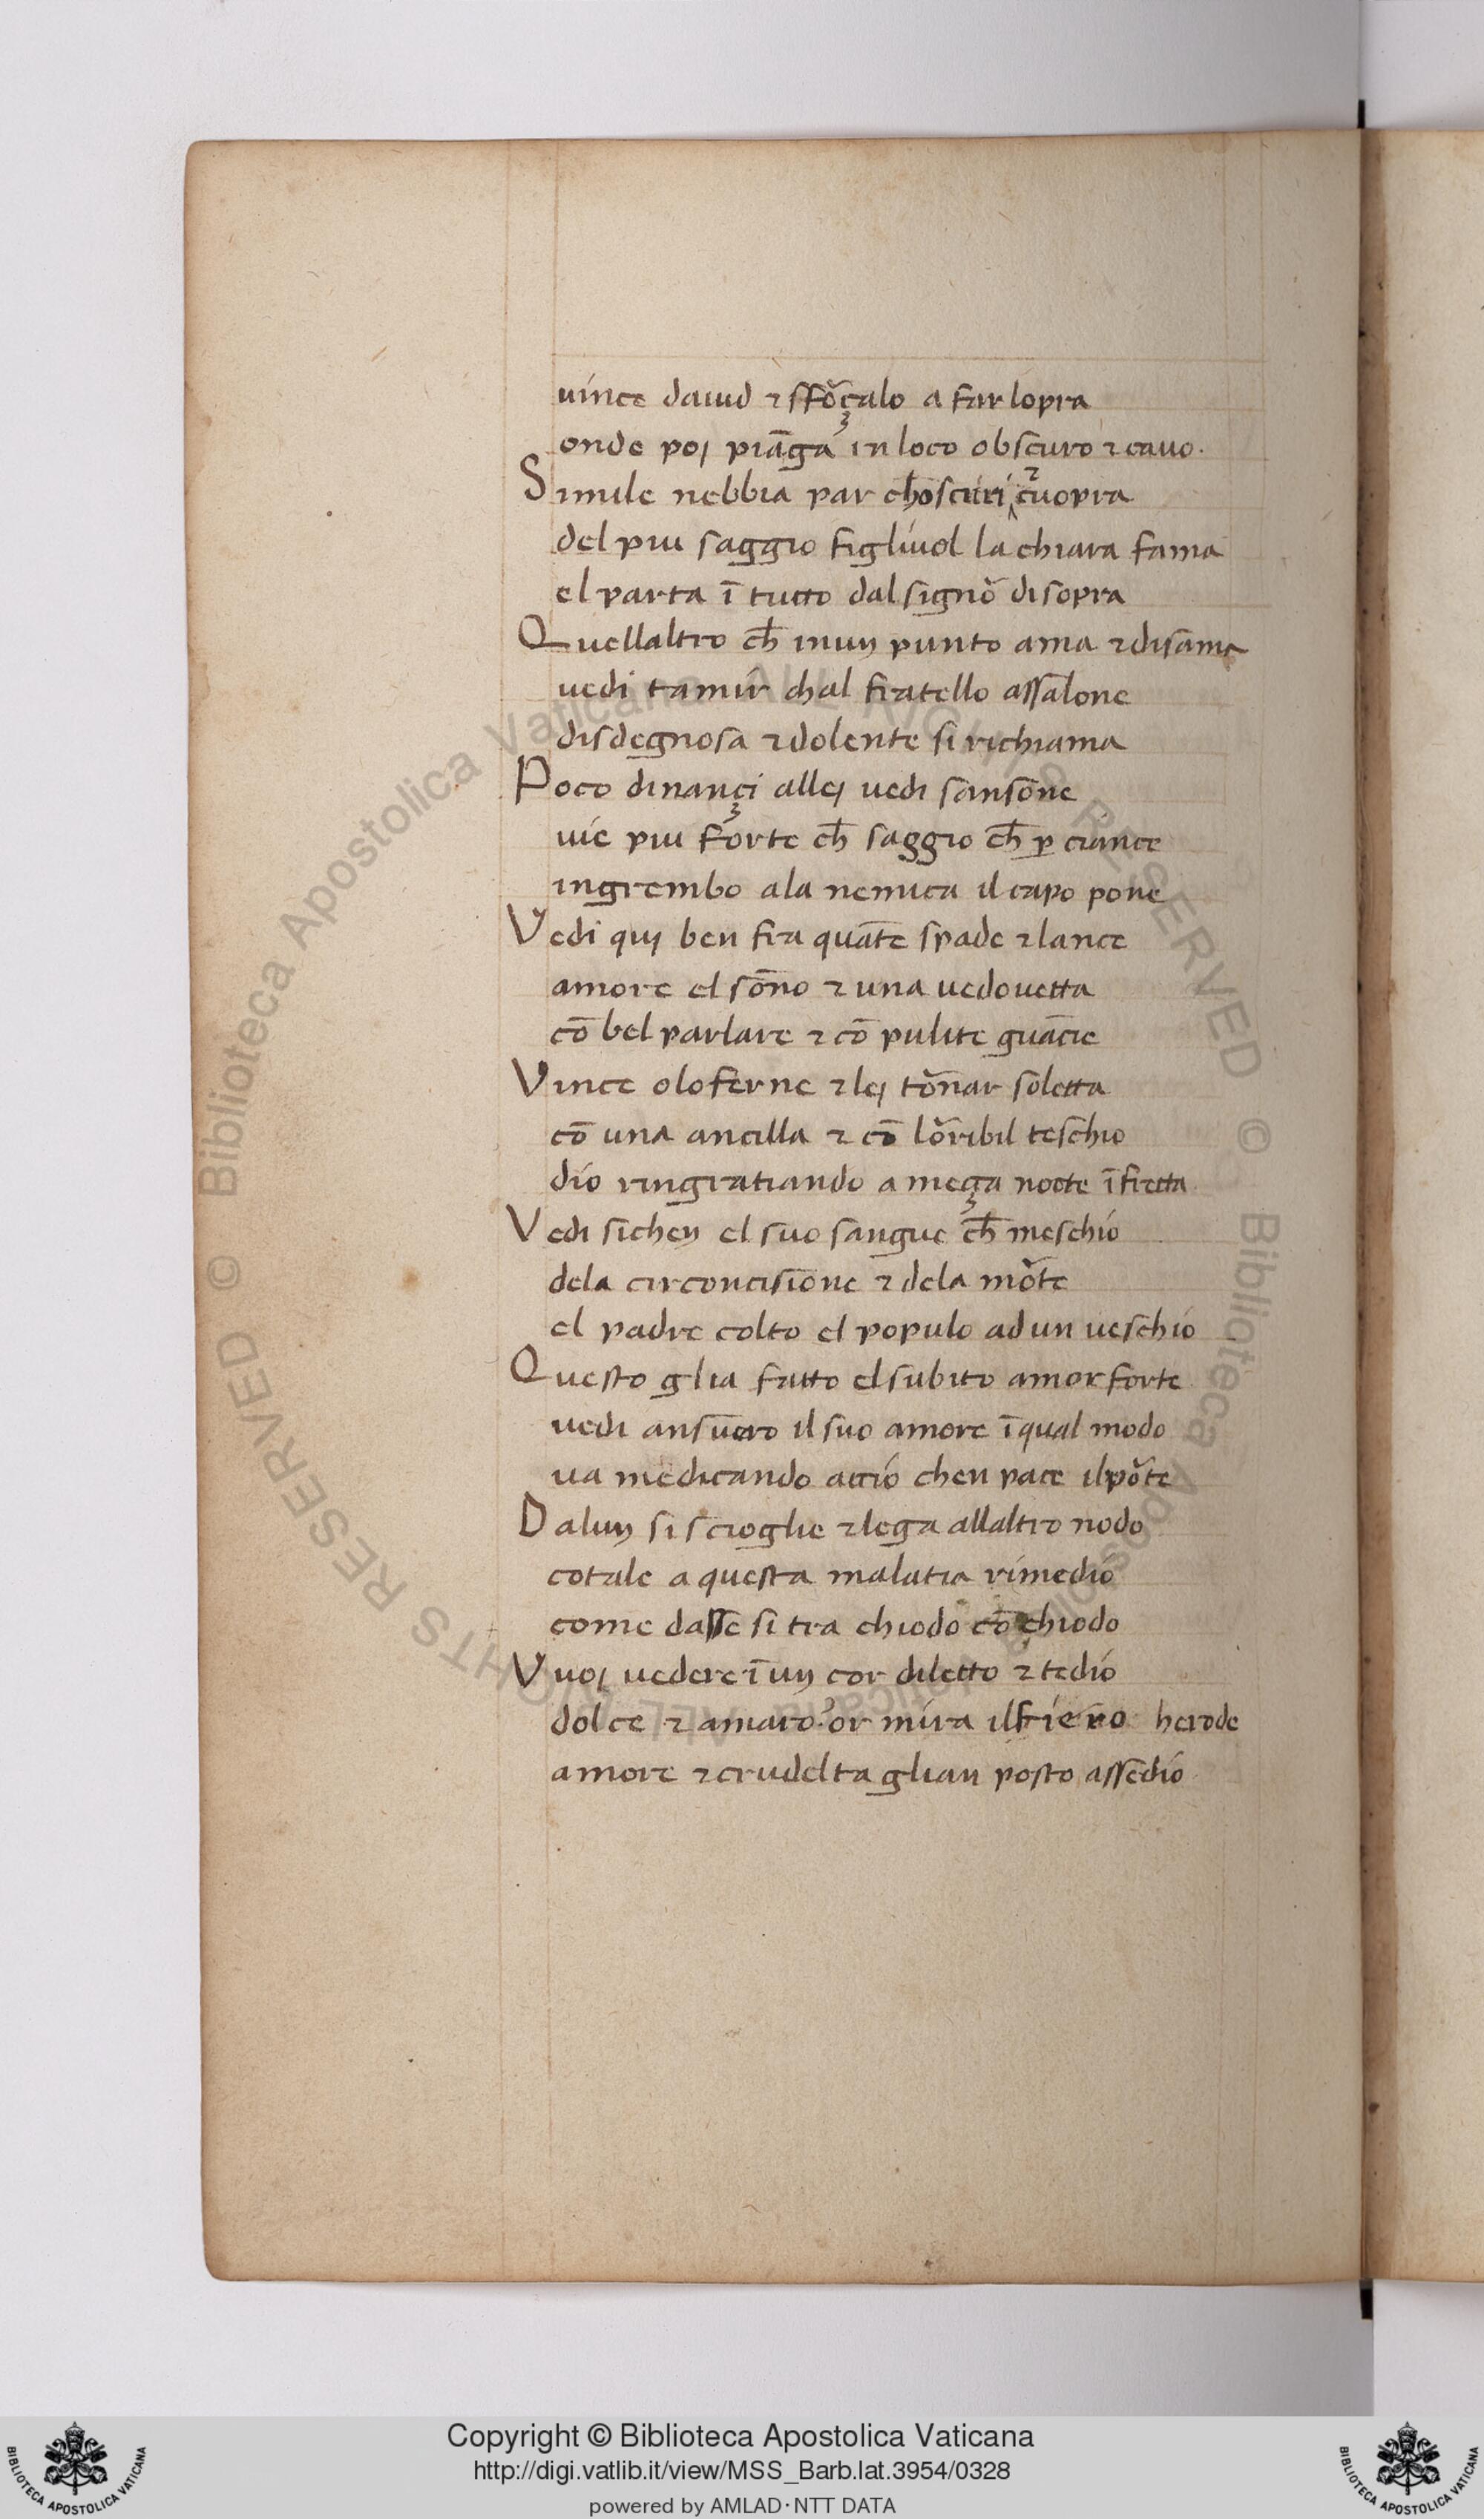 uince dauid ⁊ sfōçalo a far lopra
onde poj piāga in loco obscuro ⁊ cauo.
Simile nebbia par ch̄oscuri ⁊ cuopra
del piu saggio figliuol la chiara fama
el parta ī tutto dal signō di sopra
Quellaltro ch̄ inun punto ama ⁊ disama
uedi tamir chal fratello assalone
disdegnosa ⁊ dolente si richiama
Poco dinançi allej uedi sansone
uie piu forte ch̄ saggio ch̄ ꝑ ciance
ingrembo ala nemica il capo pone
Vedi quj ben fra quāte spade ⁊ lance
amore el sōno ⁊ una uedouetta
cō bel parlare ⁊ cō pulite guācie
Vince oloferne ⁊ lej tōnar soletta
cō una ancilla ⁊ cō lōribil teschio
dio ringratiando a meça nocte ī fretta
Vedi sichen el suo sangue ch̄ meschio
dela circoncisione ⁊ dela mōte
el padre colto el populo ad un ueschio
Questo glia fatto el subito amor forte
uedi ansuero il suo amore ī qual modo
ua medicando accio chen pace il pōte
Dalun si scioglie ⁊ lega allaltro nodo
cotale a questa malatia rimedio
come dasse si tra chiodo cō chiodo
Vuoj uedere ī un cor diletto ⁊ tedio
dolce ⁊ amaro? or mira il fiero herode
amore ⁊ crudelta glian posto assedio
© Biblioteca Apostolica Vaticana ALL RIGHTS RESERVED
© Biblioteca Apostolica Vaticana ALL RIGHTS RESERVED
BIBLIOTECA APOSTOLICA VATICANA
Copyright © Biblioteca Apostolica Vaticana
http://digi.vatlib.it/view/MSS_Barb.lat.3954/0328
powered by AMLAD·NTT DATA
BIBLIOTECA APOSTOLICA VATICANA